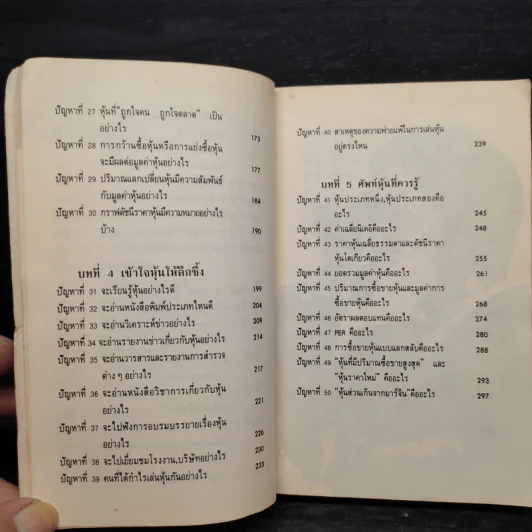 ปัญหาที่ 27 หุ้นที่"ถูกใจคน ถูกใจตลาด" เป็น
อย่างไร 173
ปัญหาที่ 28 การกว้านซื้อหุ้นหรือการแย่งซื้อหุ้น
จะมีผลต่อมูลค่าหุ้นอย่างไร 177
ปัญหาที่ 29 ปริมาณแลกเปลี่ยนหุ้นมีความสัมพันธ์
กับมูลค่าหุ้นอย่างไร 184
ปัญหาที่ 30 กราฟดัชนีราคาหุ้นมีความหมายอย่างไร
บ้าง 190
บทที่ 4 เข้าใจหุ้นให้ลึกซึ้ง
ปัญหาที่ 31 จะเรียนรู้หุ้นอย่างไรดี 199
ปัญหาที่ 32 จะอ่านหนังสือพิมพ์ประเภทไหนดี 204
ปัญหาที่ 33 จะอ่านวิเคราะห์ข่าวอย่างไร 209
ปัญหาที่ 34 จะอ่านรายงานข่าวเกี่ยวกับหุ้นอย่างไร 214
ปัญหาที่ 35 จะอ่านวารสารและรายงานการสำรวจ
ต่าง ๆ อย่างไร 217
ปัญหาที่ 36 จะอ่านหนังสือวิชาการเกี่ยวกับหุ้น
อย่างไร 221
ปัญหาที่ 37 จะไปฟังการอบรมบรรยายเรื่องหุ้น
อย่างไร 226
ปัญหาที่ 38 จะไปเยี่ยมชมโรงงาน,บริษัทอย่างไร 230
ปัญหาที่ 39 คนที่ได้กำไรเล่นหุ้นกันอย่างไร 233
ปัญหาที่ 40 สาเหตุของความพ่ายแพ้ในการเล่นหุ้น
อยู่ตรงไหน 239
บทที่ 5 ศัพท์หุ้นที่ควรรู้
ปัญหาที่ 41 หุ้นประเภทหนึ่ง,หุ้นประเภทสองคือ
อะไร 245
ปัญหาที่ 42 ค่าเฉลี่ยนิเคอิคืออะไร 248
ปัญหาที่ 43 ราคาหุ้นเฉลี่ยธรรมดาและดัชนีราคา
หุ้นโตเกียวคืออะไร 255
ปัญหาที่ 44 ยอดรวมมูลค่าหุ้นคืออะไร 261
ปัญหาที่ 45 ปริมาณการซื้อขายหุ้นและมูลค่าการ
ซื้อขายหุ้นคืออะไร 268
ปัญหาที่ 46 อัตราผลตอบแทนคืออะไร 274
ปัญหาที่ 47 PER คืออะไร 280
ปัญหาที่ 48 การซื้อขายหุ้นแบบแลกสลับคืออะไร 288
ปัญหาที่ 49 "หุ้นที่มีปริมาณซื้อขายสูงสุด" และ
"หุ้นราคาใหม่" คืออะไร 293
ปัญหาที่ 50 "หุ้นส่วนเกินจากมาร์จิน"คืออะไร 297